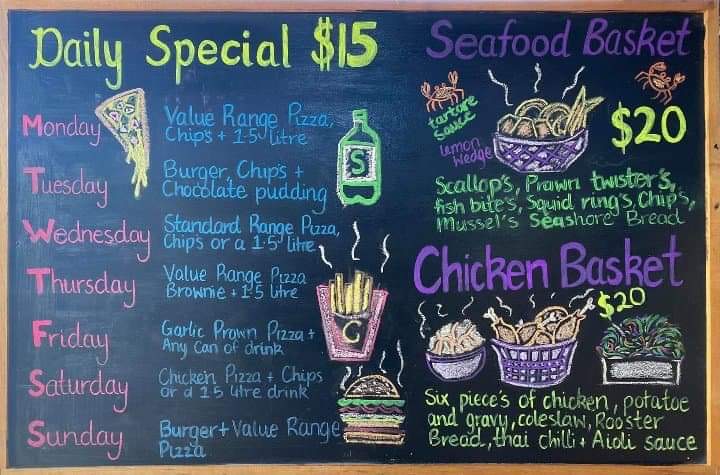 Daily Special $15
Monday
Value Range Pizza,
Chips + 1.5 litre
Tuesday
Burger, Chip's +
Chocolate pudding
Wednesday
Standard Range Pizza,
Chips or a 1.5 litre
Thursday
Value Range Pizza
Brownie + 1.5 litre
Friday
Garlic Prown Pizza +
Any Can of drink
Saturday
Chicken Pizza + Chips
or a 1.5 litre drink
Sunday
Burger + Value Range
Pizza
S
C
Seafood Basket
$20
tartare
sauce
lemon
wedge
Scallop's, Prawn twister's,
fish bite's, Squid ring's, Chip's,
Mussel's Seashore Bread
Chicken Basket
$20
Six piece's of chicken, potatoe
and gravy, coleslaw, Rooster
Bread, thai chilli + Aioli sauce